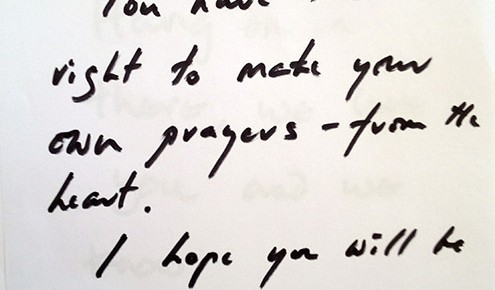 You have
right to make your
own prayers - from the
heart.
I hope you will be